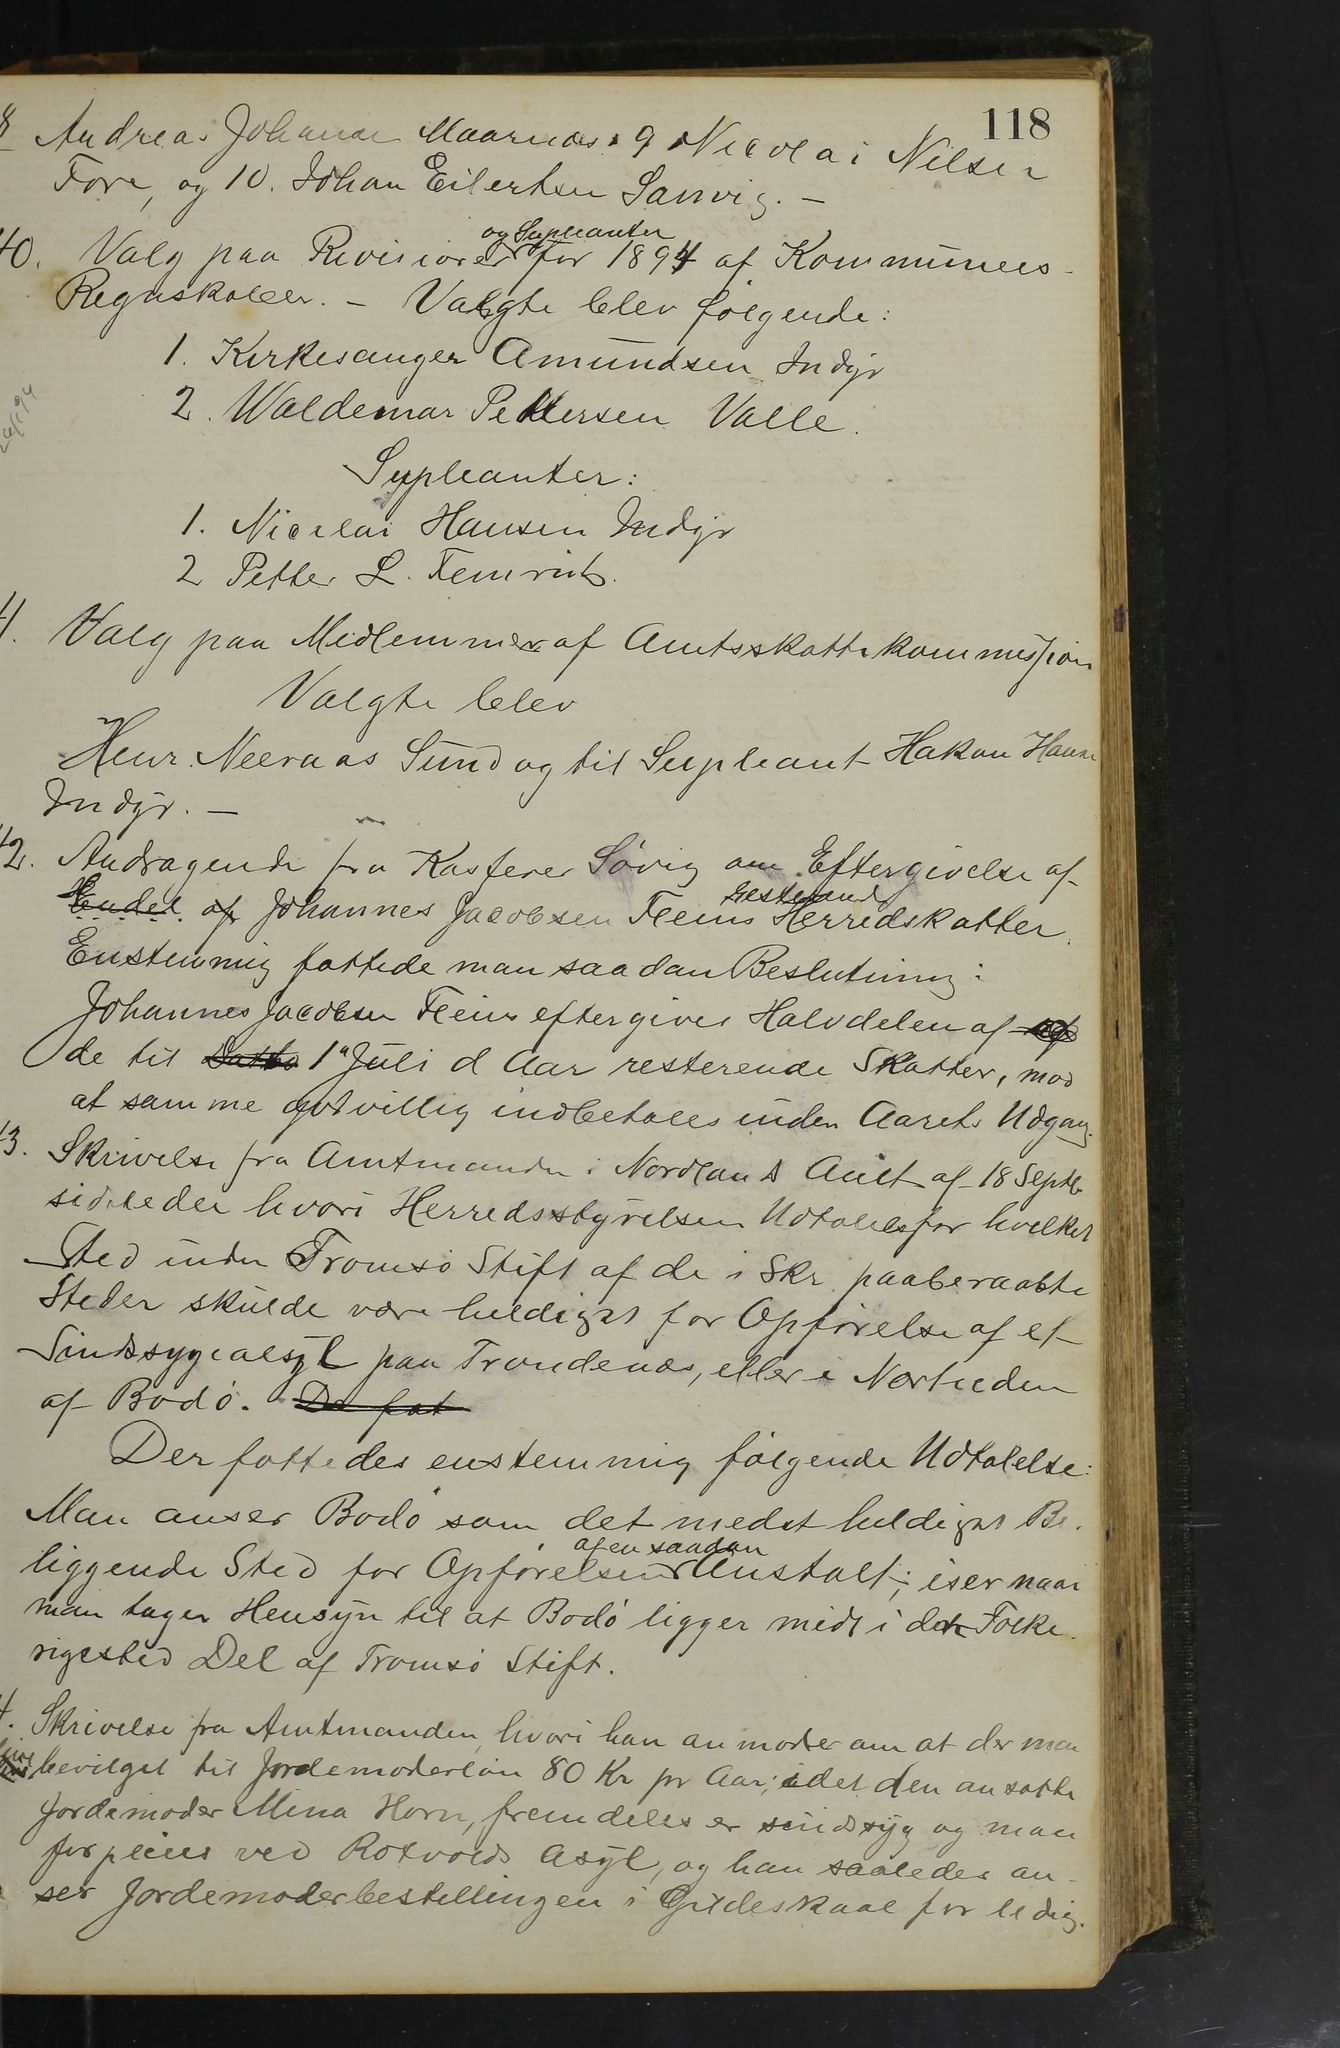 118
8 Andreas Johansen Maarnæs 9 Nicolai Nilsen
Fore, og 10. Johan Eilertsen Sanvig. —
40. Valg paa Revisiorer og Supleanter for 1894 af Kommunens
Regnskaber. — Valgte blev følgende:
1. Kirkesanger Amundsen Indyr
2. Waldemar Pettersen Valle.
Supleanter:
1. Nicolai Hansen Indyr
2 Petter L. Femris
41. Valg paa Medlemmer af Amtsskattekommisjion
Valgte blev
Henr. Neeraas Sund og til Supleant Hakon Hansen
Indyr. —
42. Andragende fra Kasserer Søvig om Eftergivelse af
Endel af Johannes Jacobsen Fleins resterende Herredskatter.
Enstemmig fattede man saadan Beslutning:
Johannes Jacobsen Flein eftergives Halvdelen af
de til Datto 1ª Juli d Aar resterende Skatter, mod
at samme godvillig indbetales inden Aarets Udgang.
43. Skrivelse fra Amtmanden i Nordlands Amt af 18 Septb
sidstleden hvori Herredsstyrelsen Udtaleles for hvilket
Sted inden Tromsø Stift af de i Skr. paaberaabte
Steder skulde være heldigst for Opførelse af et
Sindssygeasyl paa Trondenæs, eller i Nærheden
af Bodø. De fat
Der fattedes enstemmig følgende Udtalelse:
Man anser Bodø som det medst heldigst Be-
liggende Sted for Opførelsen af en saadan Anstalt; især naar
man tager Hensyn til at Bodø ligger midt i den Folke
rigested Del af Tromsø Stift.
4. Skrivelse fra Amtmanden, hvori han anmoder om at der maa
blive bevilget til Jordemoderløn 80 Kr pr Aar; idet den ansatte
Jordemoder Mina Horn, fremdeles er sindssyg og maa
forpleies ved Rotvolds Asyl, og han saaledes an-
ser Jordemoderbestellingen i Gildeskaal for ledig.